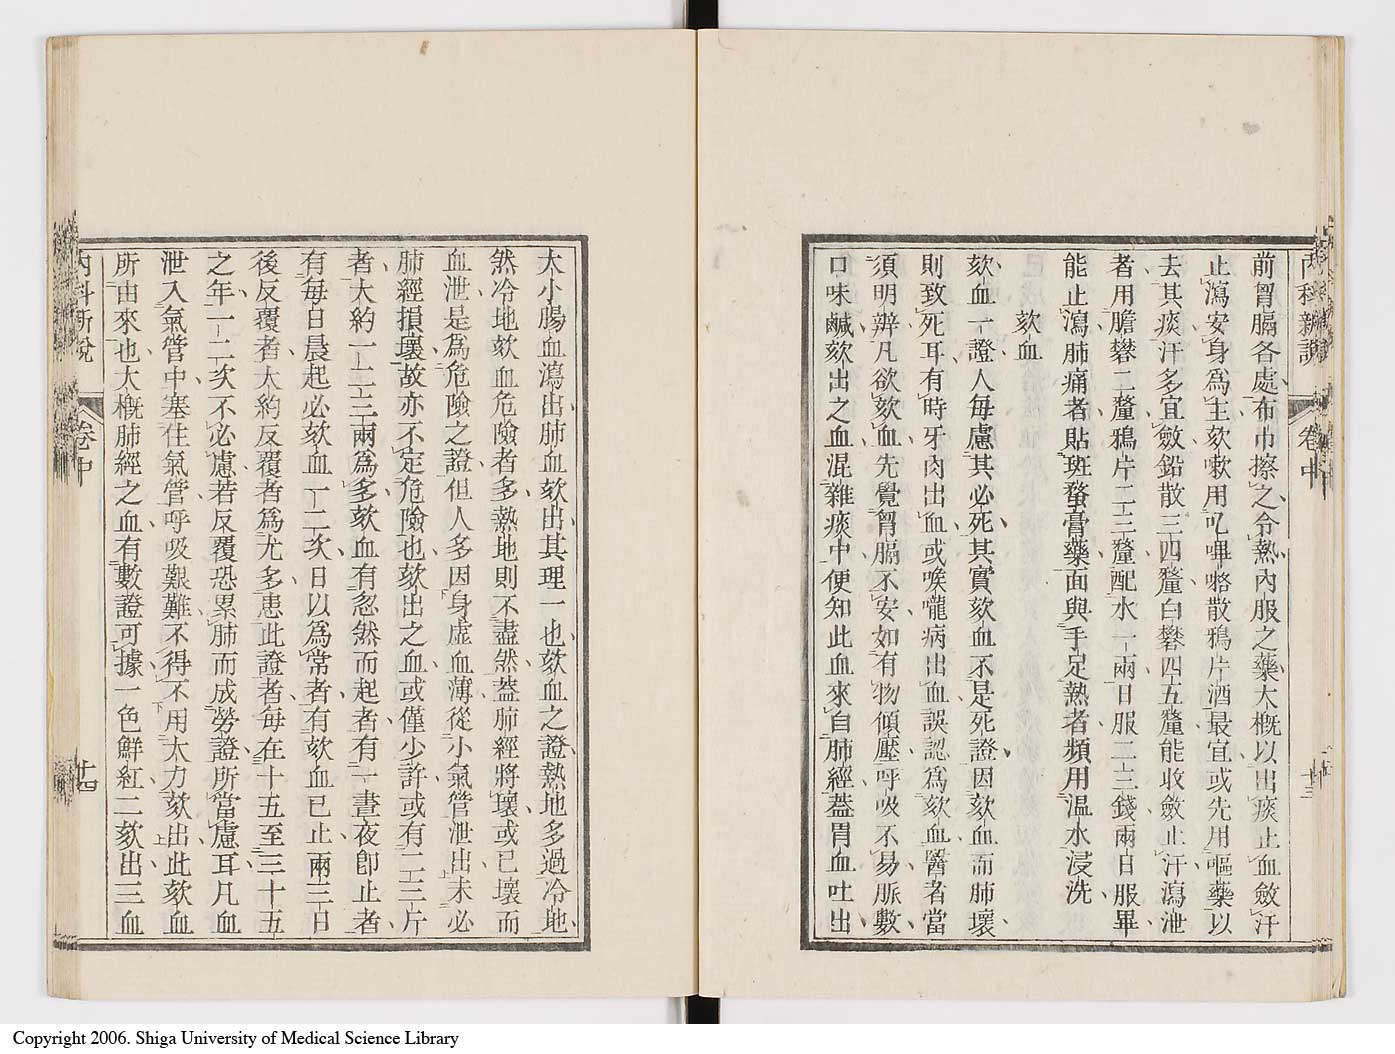 內科新說
卷中
十三
前胷膈各處布巾擦之令熱內服之藥大槪以出痰止血斂汗
止瀉安身爲主欬嗽用叱嗶咯散鴉片酒最宜或先用嘔藥以
去其痰汗多宜斂鉛散三四釐白礬四五釐能收斂止汗瀉泄
者用膽礬二釐鴉片二三釐配水一兩日服二三錢兩日服畢
能止瀉肺痛者貼斑蝥膏藥面與手足熱者頻用温水浸洗
欬血
欬血一證人每慮其必死其實欬血不是死證因欬血而肺壞
則致死耳有時牙肉出血或喉嚨病出血誤認爲欬血醫者當
須明辨凡欲欬血先覺胷膈不安如有物傾壓呼吸不易脈數
口味鹹欬出之血混雜痰中便知此血來自肺經蓋胃血吐出
太小腸血瀉出肺血欬出其理一也欬血之證熱地多過冷地
然冷地欬血危險者多熱地則不盡然蓋肺經將壞或已壞而
血泄是爲危險之證但人多因身虛血薄從小氣管泄出未必
肺經損壞故亦不定危險也欬出之血或僅少許或有二三斤
者大約一二三兩爲多欬血有忽然而起者有一晝夜卽止者
有每日晨起必欬血一二次日以爲常者有欬血已止兩三日
後反覆者大約反覆者爲尤多患此證者每在十五至三十五
之年一二次不必慮若反覆恐累肺而成勞證所當慮耳凡血
泄入氣管中塞住氣管呼吸艱難不得不用大力欬出此欬血
所由來也大槪肺經之血有數證可據一色鮮紅二欬出三血
內科新說
卷中
十四
Copyright 2006. Shiga University of Medical Science Library